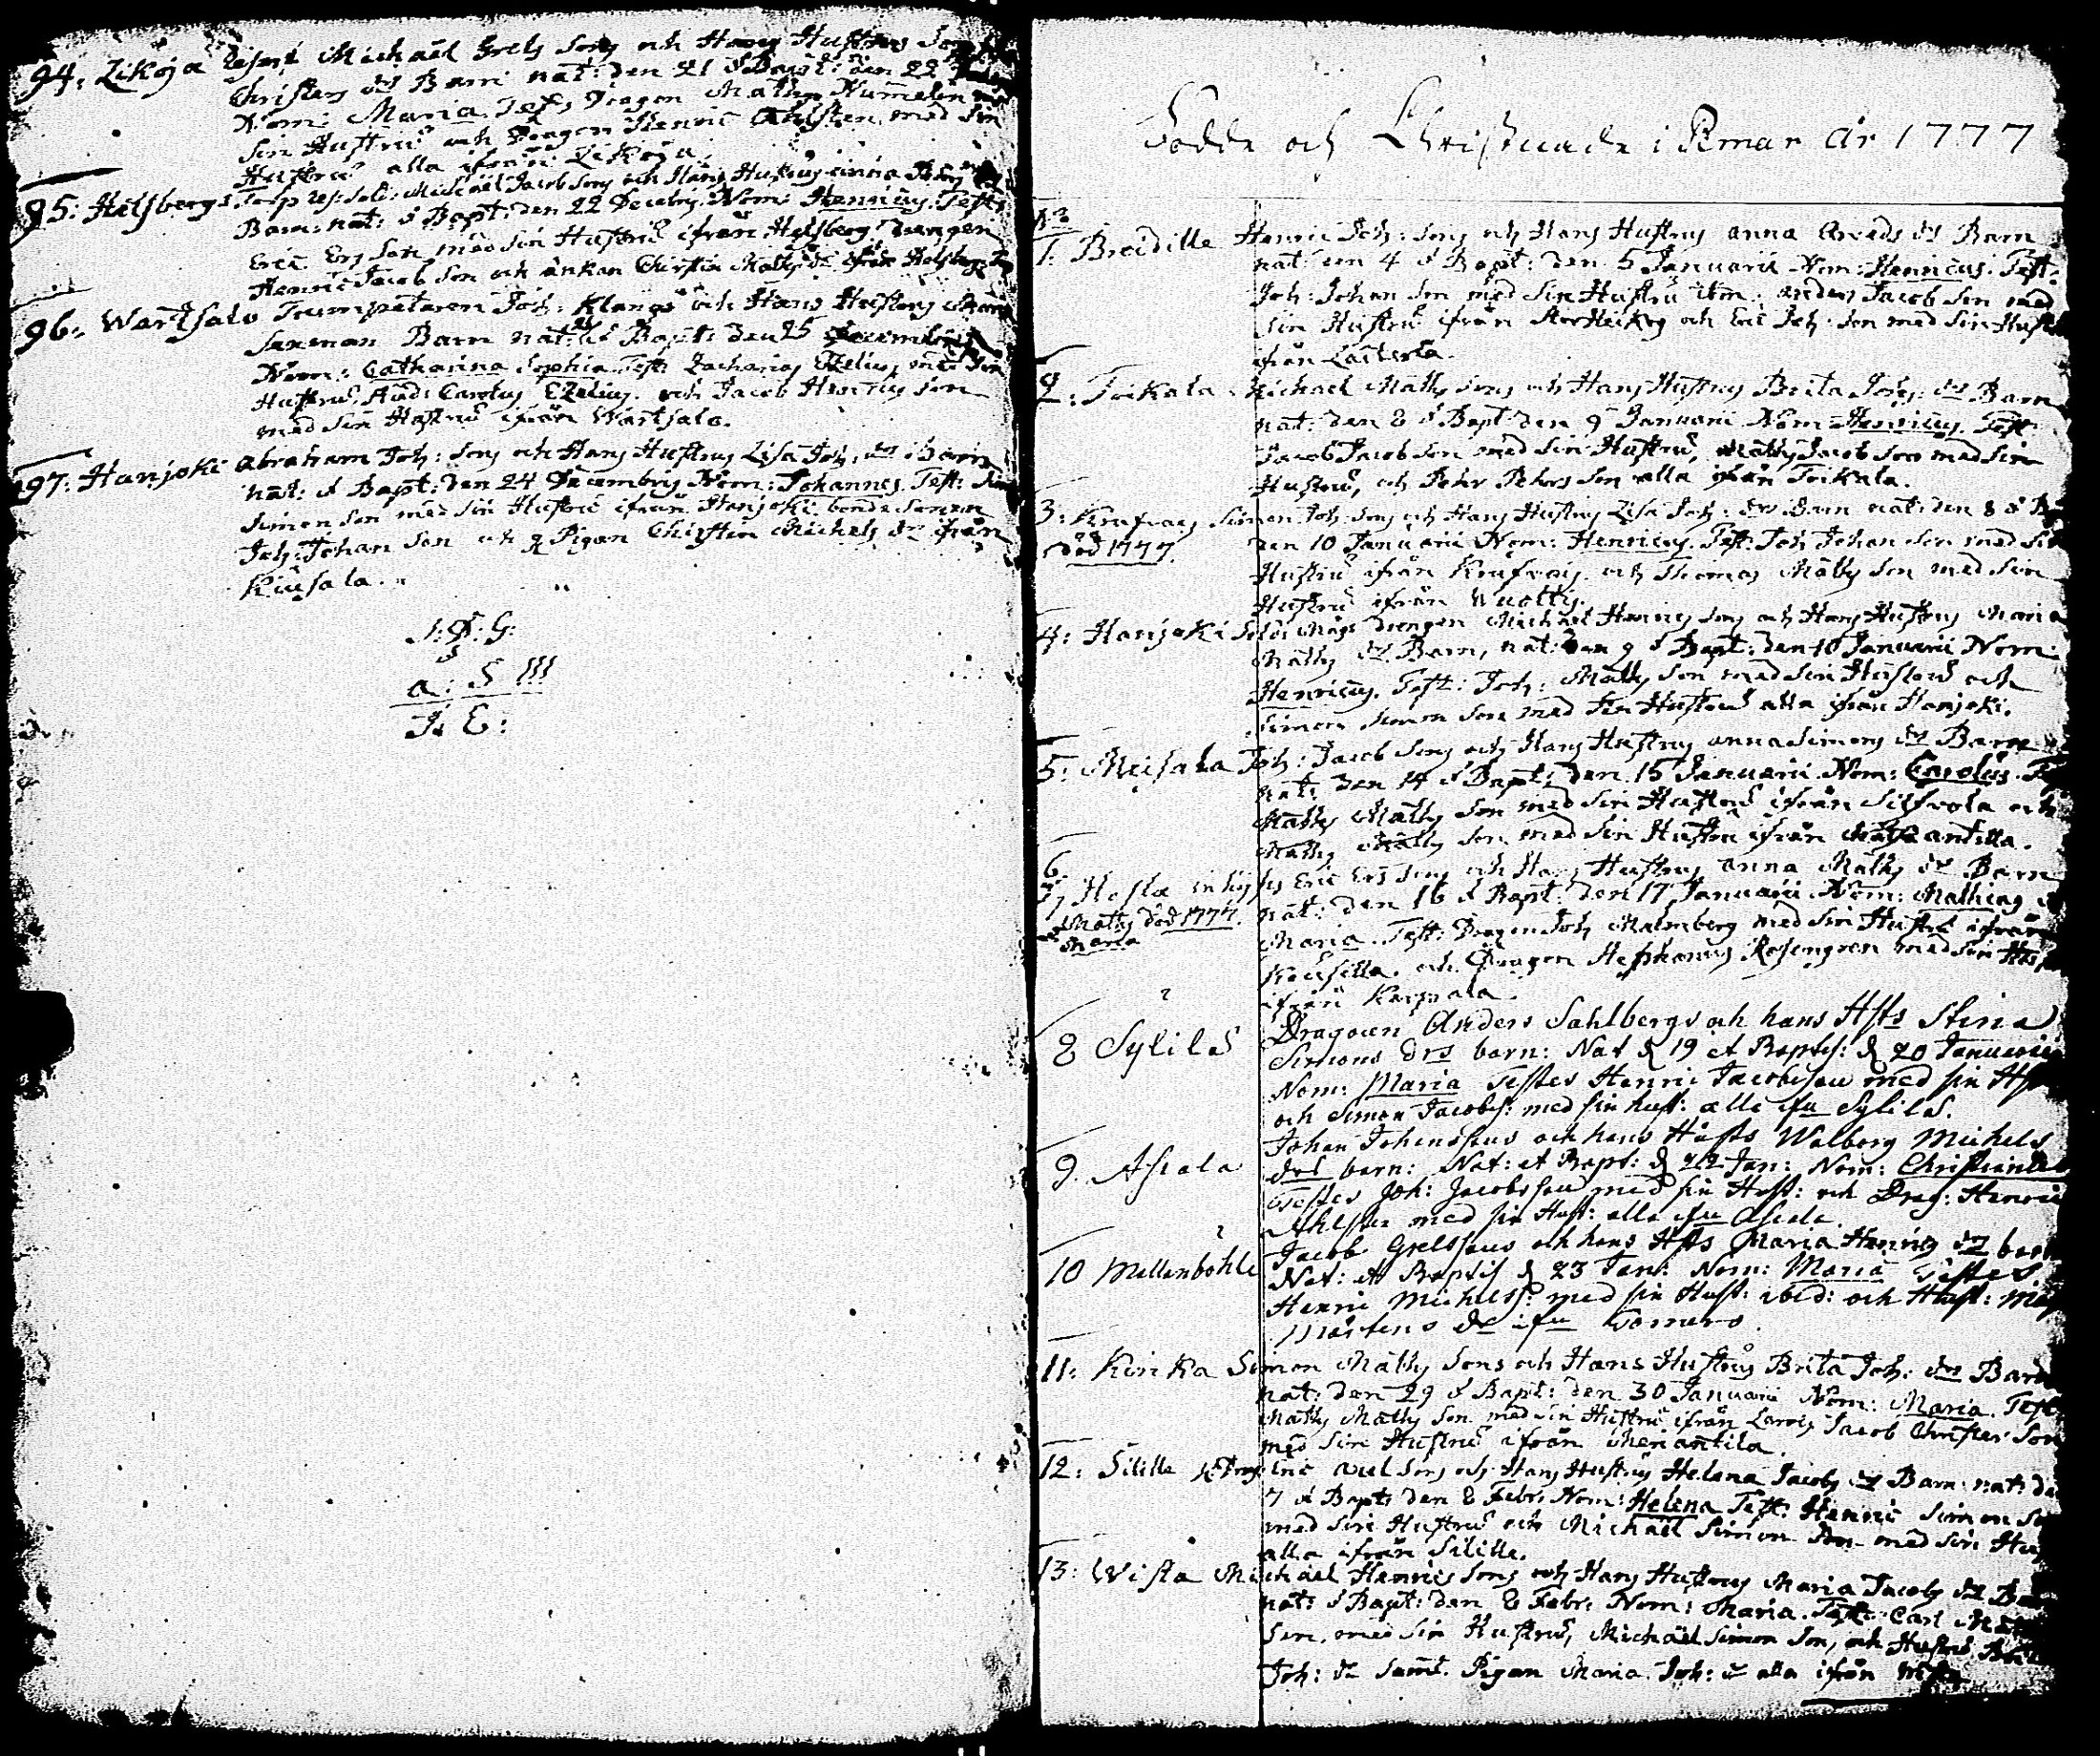 94: Zikoja Michaël Grels Sons och Hans Hustrus
Christers dr Barn nat: den 21 & Bapt: den 22
Nom: Maria. Test: Dragon Maths Hummelin
Sin Hustru och Dragon Henric Ahlsten med Sin
Hustru alla ifrån Zikoja.
95: Helsberg Michaël Jacob Sons och Hans Hustrus anna
Barn: nat: & Bapt: den 22 Decebris Nom: Henricus. Test:
Eric Ers Son med Sin Hustru ifrån Helsberg drengen
Henric Jacob Son och änkan Christin Maths dr ifrån Helsberg
96: Wartsalo Trumpetaren Joh: Klangs och Hans Hustrus
Saxman Barn nat: & Bapt: den 25 Decembris
Nom: Catharina Sophia Test: Zacharias Ezelius med Sin
Hustru, Stud: Carolus Ezelius. och Jacob Henrics Son
med Sin Hustru ifrån Wartsalo.
97: Hanjoki Abraham Joh: Sons och Hans Hustrus Lisa Joh: drs Barn
nat: & Bapt: den 24 Decembris Nom: Johannes. Test:
Simon Son med Sin Hustru ifrån Hanjoki bonde Sonen
Joh: Johan Son och Pigan Christin Michels dr ifrån
Kiusala.
S: D: G:
a: S !!!
J: E:
Födde och Christnade i Pemar År 1777
No
1. Bredille Henric Joh: Sons och Hans Hustrus Anna Arvids drs Barn
nat: den 4 & Bapt: den 5 Januarii Nom: Henricus. Test:
Joh: Johan Son med Sin Hustru item Anders Jacob Son med
Sin Hustru ifrån StorHeikog och Eric Joh: Son med Sin Hust
ifrån
2: Toikala Michael Maths Sons och Hans Hustrus Brita Joh: drs Barn
nat: den 8 & Bapt den 9 Januarii Nom: Henricus. Test:
Jacob Jacob Son med Sin Hustru, Maths Jacob Son med Sin
Hustru, och Pehr Pehrs Son alla ifrån Toikala.
3: Krufvais Simon Joh: Sons och Hans Hustrus Lisa Joh: drs Barn nat: den 8 &
död 1777. den 10 Januarii Nom: Henricus. Test: Joh Johan Son med Sin
Hustru ifrån Krufvais. och Thomas Maths Son med Sin
Hustru ifrån Wuottis.
4: Hanjoki drengen Michaël Henrics Sons och Hans Hustrus Maria
Maths drs Barn, nat: den 9 & Bapt: den 10 Januarii Nom:
Henricus. Test: Joh: Maths Son med Sin Hustru och
Simon Simon Son med Sin Hustru alla ifrån Hanjoki.
5: Meisala Joh: Jacob Sons och Hans Hustrus anna Simons drs Barn
nat: den 14 & Bapt: den 15 Januarii Nom: Carolus.
Maths Maths Son med Sin Hustru ifrån Silfvola och
Maths Maths Son med Sin Hustru ifrån antilla.
6.
7, Hosta inhyses Eric Ers Sons och Hans Hustrus Anna Maths dr Barn
Maths död 1777. nat: den 16 & Bapt: den 17 Januarii Nom: Mathias
Maria Maria. Test: Dragon Joh Malmberg med Sin Hustru ifrån
och Dragon Stephanus Rosengren med Sin
ifrån Karpala.
8 Sylilä Dragoun Anders Sahlbergs och hans Hsts Stina
Simons drs barn: Nat d 19 et Baptis: d 20 Januarii
Nom: Maria Testes Henric Jacobsson med sin
och Simon Jacobs: med sin hust: alle ifrn Sylilä.
9. Asiala Johan Johanssons och hans Husts Walborg Michels
drs barn: Nat: et Bapt: d 22 Jan: Nom: Christina
Testes Joh: Jacobsson med sin Hust: och Drag: Henric
Ahlsten med sin Hust: alle ifrn Asiala.
10 Mellenböhle Jacob Grelssons och hans Hsts Maria Henrics drs barn
Nat: et Baptis d 23 Jan: Nom: Maria Testes
Henric Michelss: med sin Hust: ibid: och Hust:
Mårtens dr ifrn
11: Kirika Simon Maths Sons och Hans Hustrus Brita Joh: drs Barn
nat: den 29 & Bapt: den 30 Januarii Nom: Maria. Test
Maths Maths Son med Sin Hustru ifrån Jacob Christer Son
med Sin Hustru ifrån Meriantila.
12: Silille Eric Axel Sons och Hans Hustrus Helena Jacobs drs Barn nat: d
7 & Bapt: den 8 Febr: Nom: Helena Test: Henric Simon
med Sin Hustru och Michaël Simon Son med Sin
alla ifrån Silille.
13: Wista Michaël Henrics Sons och Hans Hustrus Maria Jacobs drs
nat: & Bapt: den 8 Febr: Nom: Maria. Test: Carl
Son, med Sin Hustru, Michaël Simon Son, och Hustru
Joh: dr samt. Pigan Maria Joh: dr alla ifrån Wista.